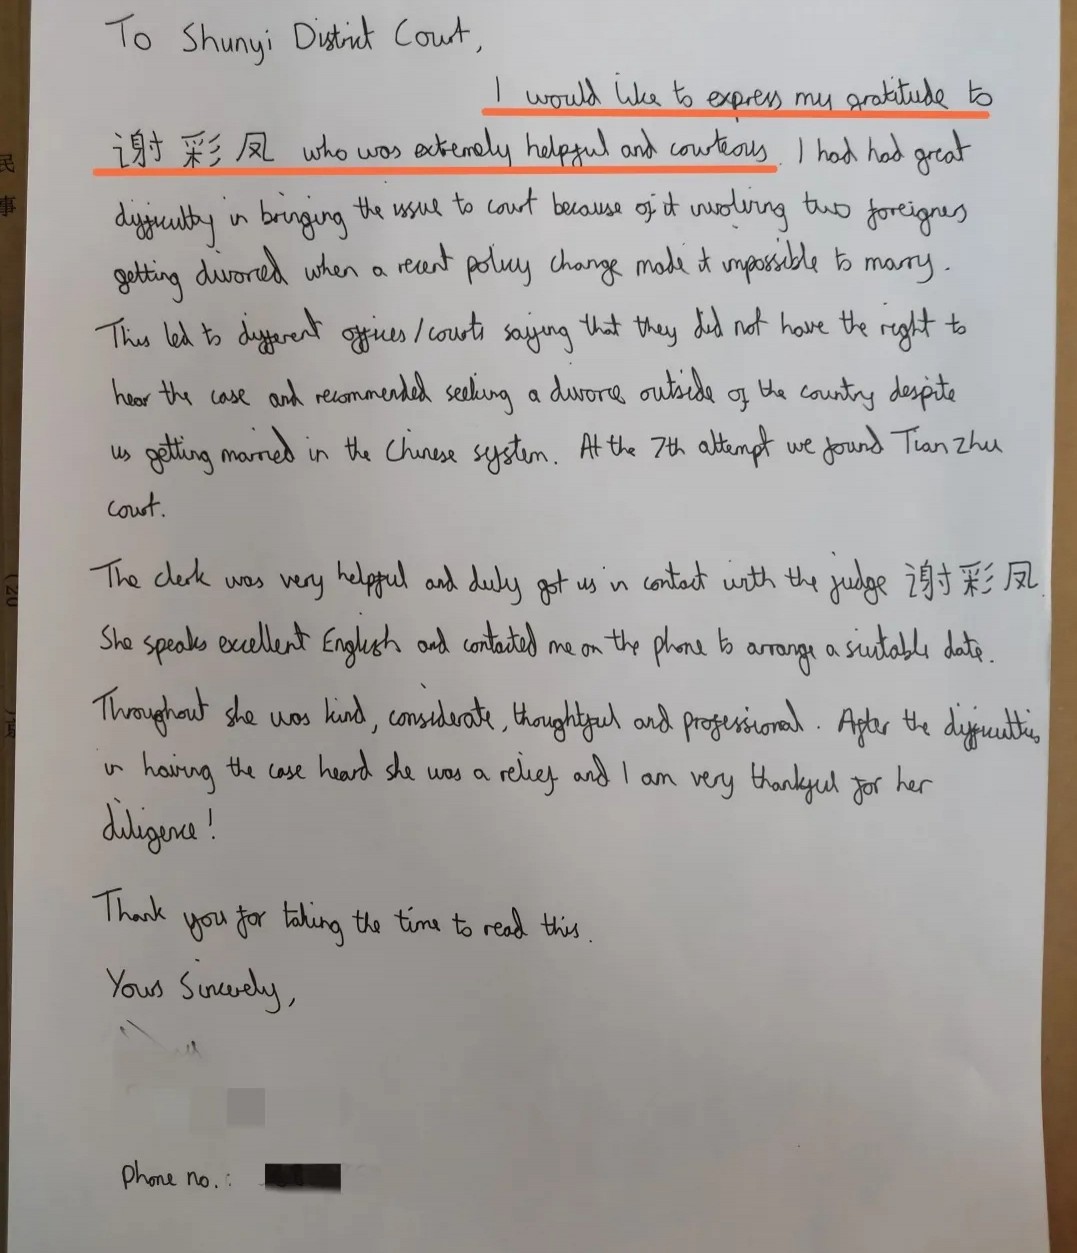 To Shunyi District Court,
I would like to express my gratitude to
谢彩凤 who was extremely helpful and courteous. I had had great
difficulty in bringing the issue to court because of it involving two foreigners
getting divorced when a recent policy change made it impossible to marry.
This led to different offices/courts saying that they did not have the right to
hear the case and recommended seeking a divorce outside of the country despite
us getting married in the Chinese system. At the 7th attempt we found Tian Zhu
court.
The clerk was very helpful and duly got us in contact with the judge 谢彩凤.
She speaks excellent English and contacted me on the phone to arrange a suitable date.
Throughout she was kind, considerate, thoughtful and professional. After the difficulties
in having the case heard she was a relief and I am very thankful for her
diligence!
Thank you for taking the time to read this.
Yours Sincerely,
Phone no.:
民
事
(20
)京